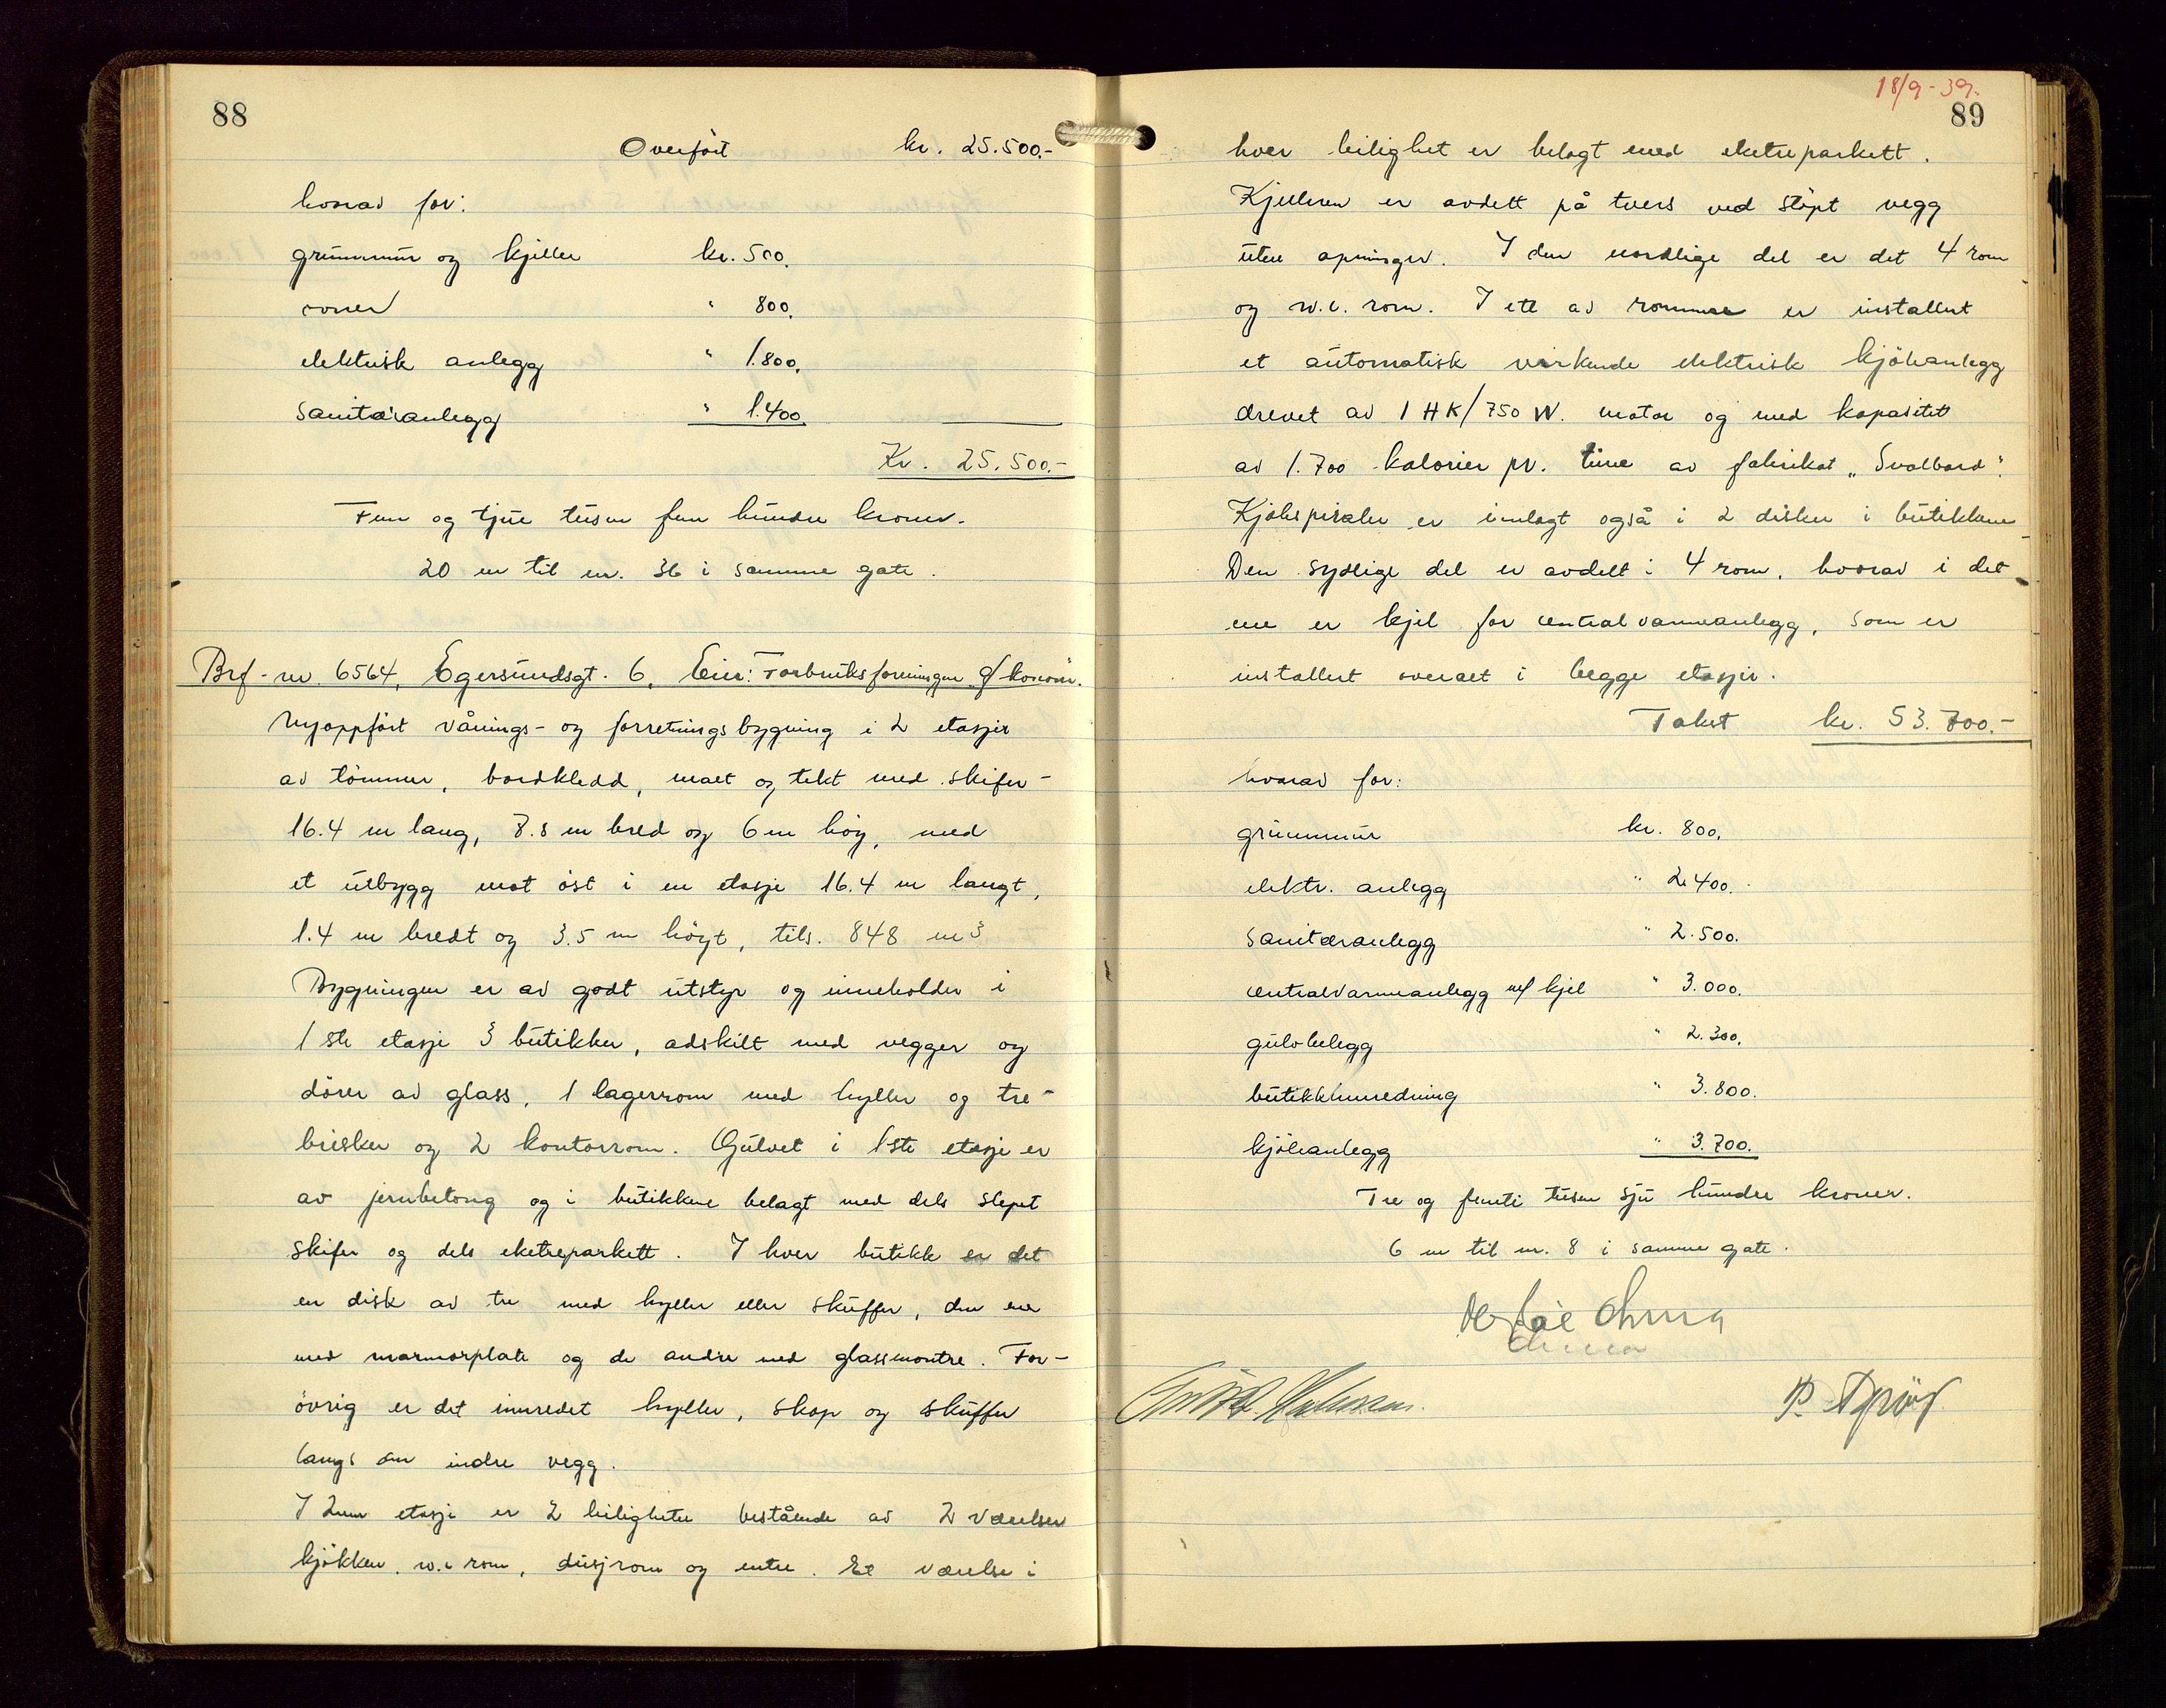 88
Overført kr. 25.500.-
hvorav for:
grunnmur og kjeller kr. 500.
ovner " 800.
elektrisk anlegg " 1.800.
sanitæranlegg " 1.400.
Kr. 25.500.-
Fem og tjue tusen fem hundre kroner.
20 m til nr. 36 i samme gate.
Brf-nr. 6564, Egersundsgt. 6, Eier: Forbruksforeningen Økonom.
Nyoppført vånings- og forretningsbygning i 2 etasjer
av tømmer, bordkledd, malt og tekt med skifer -
16.4 m lang, 7.8 m bred og 6 m høy, med
et utbygg mot øst i en etasje 16.4 m langt,
1.4 m bredt og 3.5 m høyt, tils. 848 m3
Bygningen er av godt utstyr og inneholder i
1ste etasje 3 butikker, adskilt med vegger og
dører av glass, 1 lagerrom med hyller og tre-
brisker og 2 kontorrom. Gulvet i 1ste etasje er
av jernbetong og i butikkene belagt med dels slepet
skifer og dels eketreparkett. I hver butikk er det
en disk av tre med hyller eller skuffer, den ene
med marmorplate og de andre med glassmontre. For-
øvrig er det innredet hyller, skap og skuffer
langs den indre vegg.
I 2nen etasje er 2 leiligheter bestående av 2 værelser
kjøkken, w.c rom, dusjrom og entre. Et værelse i
18/9-39.
89
hver leilighet er belagt med eketreparkett.
Kjelleren er avdelt på tvers ved støpt vegg
uten apninger. I den nordlige del er det 4 rom
og w.c. rom. I ett av rommene er installert
et automatisk virkende elektrisk kjøleanlegg
drevet av 1 HK/750 W. motor og med kapasitet
av 1.700 kalorier pr. time av fabrikat „Svalbard".
Kjølespiraler er innlagt også i 2 disker i butikkene
Den sydlige del er avdelt i 4 rom, hvorav i det
ene er kjel for centralvarmeanlegg, som er
installert overalt i begge etasjer.
Takst kr. 53.700.-
hvorav for:
grunnmur kr. 800.
elektr. anlegg " 2.400.
sanitæranlegg " 2.500.
centralvarmeanlegg m/ kjel " 3.000.
gulvbelegg " 2.300.
butikkinnredning " 3.800.
kjøleanlegg " 3.700.
Tre og femti tusen sju hundre kroner.
6 m til nr. 8 i samme gate.